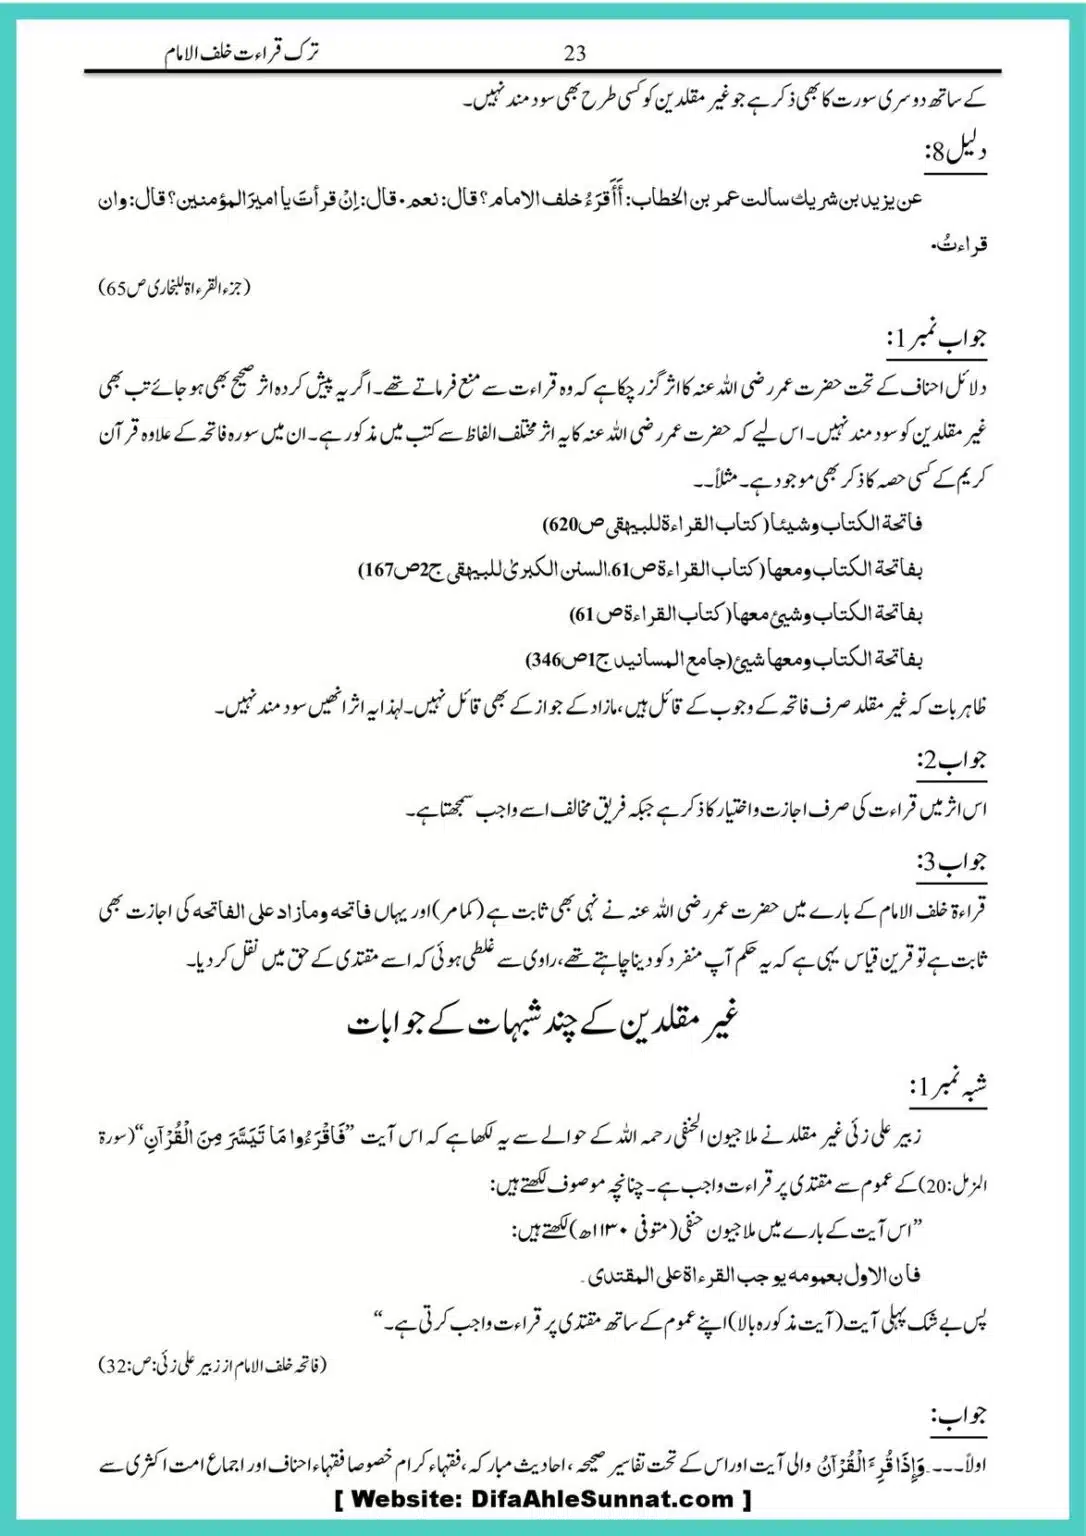 ترک قراءت خلف الامام 23
کے ساتھ دوسری سورت کا بھی ذکر ہے جو غیر مقلدین کو کسی طرح بھی سود مند نہیں۔
دلیل 8:
عن یزید بن شریك سالت عمر بن الخطاب: أَأَقرَءُ خلف الامام؟ قال: نعم۔ قال: اِنْ قرأتَ یا امیرَ المؤمنین؟ قال: وان
قراءتُ۔
(جزء القرءاۃ للبخاری ص65)
جواب نمبر 1:
دلائل احناف کے تحت حضرت عمر رضی اللہ عنہ کا اثر گزر چکا ہے کہ وہ قراءت سے منع فرماتے تھے۔ اگر یہ پیش کردہ اثر صحیح بھی ہو جائے تب بھی
غیر مقلدین کو سود مند نہیں۔ اس لیے کہ حضرت عمر رضی اللہ عنہ کا یہ اثر مختلف الفاظ سے کتب میں مذکور ہے۔ ان میں سورہ فاتحہ کے علاوہ قرآن
کریم کے کسی حصہ کا ذکر بھی موجود ہے۔ مثلاً۔۔
فاتحة الکتاب وشیئا (کتاب القراءة للبیہقی ص620)
بفاتحة الکتاب ومعها (کتاب القراءة ص61، السنن الکبریٰ للبیہقی ج2ص167)
بفاتحة الکتاب وشیئ معها (کتاب القراءة ص61)
بفاتحة الکتاب ومعها شیئ (جامع المسانید ج1ص346)
ظاہر بات کہ غیر مقلد صرف فاتحہ کے وجوب کے قائل ہیں، مازاد کے جواز کے بھی قائل نہیں۔ لہذا یہ اثر انھیں سود مند نہیں۔
جواب 2:
اس اثر میں قراءت کی صرف اجازت و اختیار کا ذکر ہے جبکہ فریق مخالف اسے واجب سمجھتا ہے۔
جواب 3:
قراءۃ خلف الامام کے بارے میں حضرت عمر رضی اللہ عنہ نے نہی بھی ثابت ہے (کمامر) اور یہاں فاتحه ومازاد علی الفاتحه کی اجازت بھی
ثابت ہے تو قرین قیاس یہی ہے کہ یہ حکم آپ منفرد کو دینا چاہتے تھے، راوی سے غلطی ہوئی کہ اسے مقتدی کے حق میں نقل کر دیا۔
غیر مقلدین کے چند شبہات کے جوابات
شبہ نمبر 1:
زبیر علی زئی غیر مقلد نے ملاجیون الحنفی رحمہ اللہ کے حوالے سے یہ لکھا ہے کہ اس آیت ”فَاقْرَءُوا مَا تَيَسَّرَ مِنَ الْقُرْآنِ“ (سورۃ
المزمل:20) کے عموم سے مقتدی پر قراءت واجب ہے۔ چنانچہ موصوف لکھتے ہیں:
”اس آیت کے بارے میں ملاجیون حنفی (متوفی ۱۱۳۰ھ) لکھتے ہیں:
فان الاول بعمومه یوجب القرءاة علی المقتدی۔
پس بے شک پہلی آیت (آیت مذکورہ بالا) اپنے عموم کے ساتھ مقتدی پر قراءت واجب کرتی ہے۔“
(فاتحہ خلف الامام از زبیر علی زئی: ص:32)
جواب:
اولاً۔۔۔۔ وَإِذَا قُرِءَ الْقُرْآنُ والی آیت اور اس کے تحت تفاسیر صحیحہ، احادیث مبارکہ، فقہاء کرام خصوصا فقہاء احناف اور اجماع امت اکثری سے
[ Website: DifaAhleSunnat.com ]